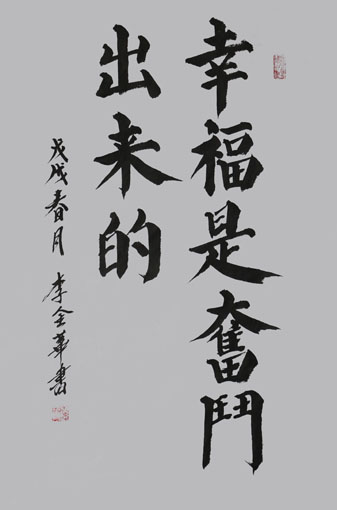 幸福是奮鬥
出来的
戊戌春月 李全華書